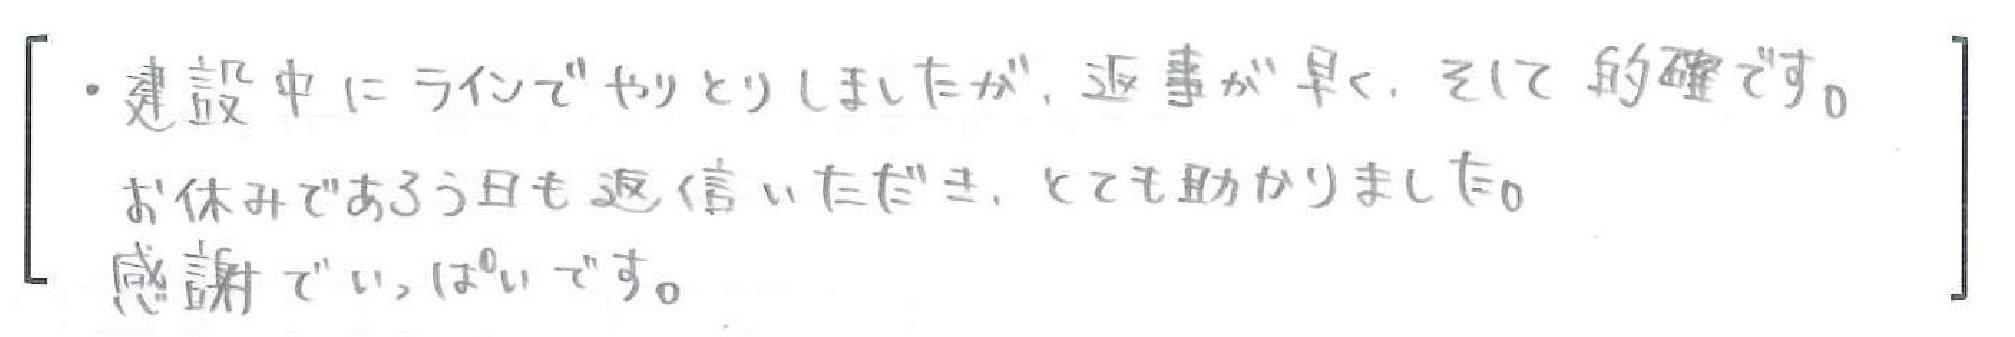 ・建設中にラインでやりとりしましたが、返事が早く、そして的確です。
お休みであろう日も返信いただき、とても助かりました。
感謝でいっぱいです。